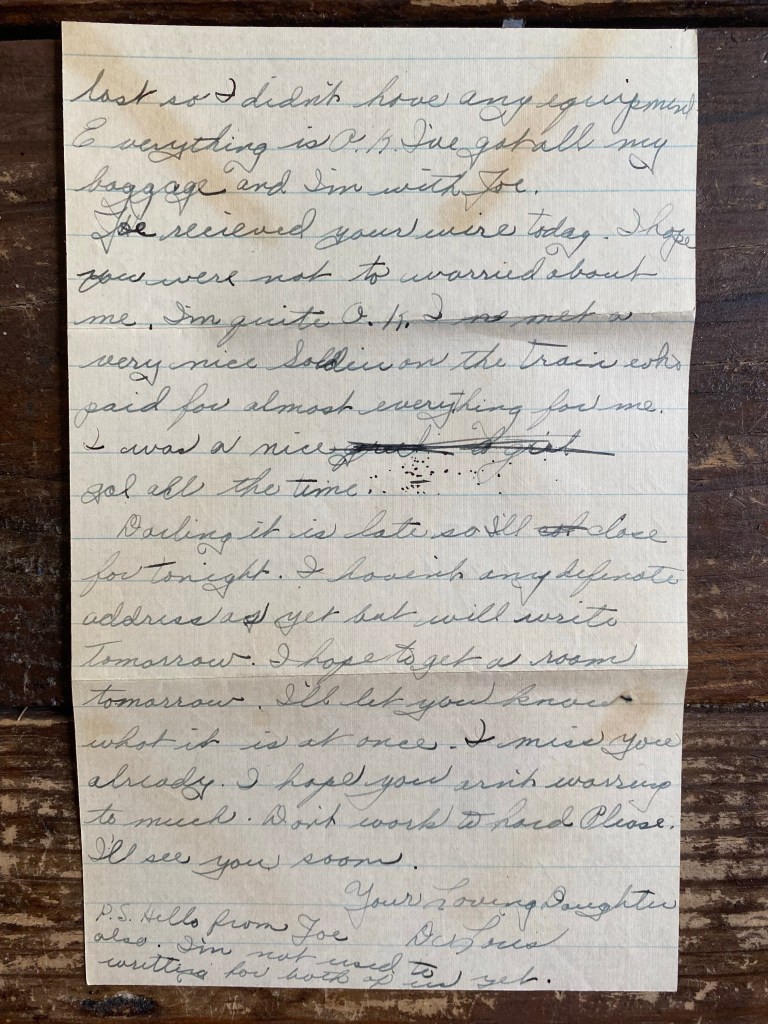 lost so I didn't have any equipment
Everything is O.K. I've got all my
baggage and I'm with Joe.
Joe recieved your wire today. I hope
you were not to worried about
me. I'm quite O.K. I met a
very nice Soldier on the train who
paid for almost everything for me.
I was a nice girl
gal all the time.
Darling it is late so I'll close
for tonight. I haven't any definate
address as yet but will write
tomorrow. I hope to get a room
tomorrow. I'll let you know
what it is at once. I miss you
already. I hope you arn't worring
to much. Don't work to hard Please.
I'll see you soom.
Your Loving Daughter
DeLoris
P.S. Hello from Joe
also. I'm not used to
writting for both of us yet.